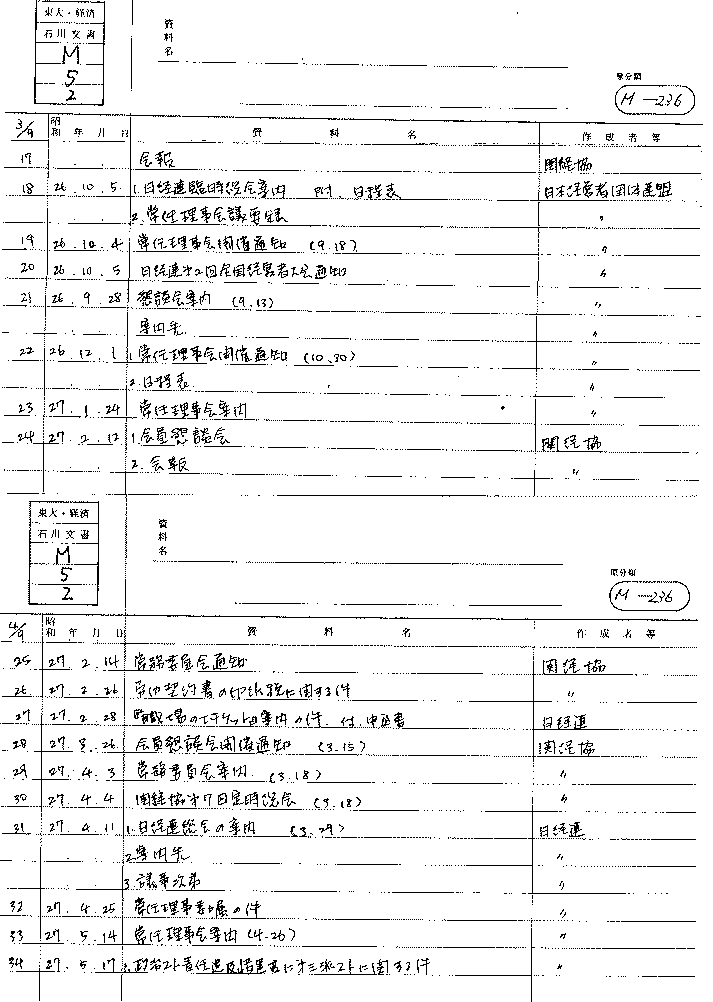 東大・経済
石川文書
M
5
2
資料名
原分類
M-236
3/9 昭和 年 月 日 資 料 名 作成者等
17 会報 関経協
18 26.10.5 1.日経連臨時総会案内 附.日程表 日本経営者団体連盟
2.常任理事会議事録 〃
19 26.10.4 常任理事会開催通知 (9.18) 〃
20 26.10.5 日経連第2回全国経営者大会通知 〃
21 26.9.28 懇談会案内 (9.13) 〃
案内先 〃
22 26.12.1 1.常任理事会開催通知 (10.30) 〃
2.日程表 〃
23 27.1.24 常任理事会案内 〃
24 27.2.12 1.会員懇談会 関経協
2.会報 〃
東大・経済
石川文書
M
5
2
資料名
原分類
M-236
4/9 昭和 年 月 日 資 料 名 作成者等
25 27.2.14 常務委員会通知 関経協
26 27.2.26 契約書の印紙税に関する件 〃
27 27.2.28 職場のエチケット案内の件. 付. 申込書 日経連
28 27.3.26 会員懇談会開催通知 (3.15) 関経協
29 27.4.3 常務委員会案内. (3.18) 〃
30 27.4.4 関経協第7回定時総会 (3.18) 〃
31 27.4.11 1.日経連総会の案内 (3.29) 日経連
2.案内先 〃
3.議事次第 〃
32 27.4.25 常任理事委嘱の件 〃
33 27.5.14 常任理事会案内 (4.26) 〃
34 27.5.17 1.政治スト責任追及措置並に第三波ストに関する件 〃